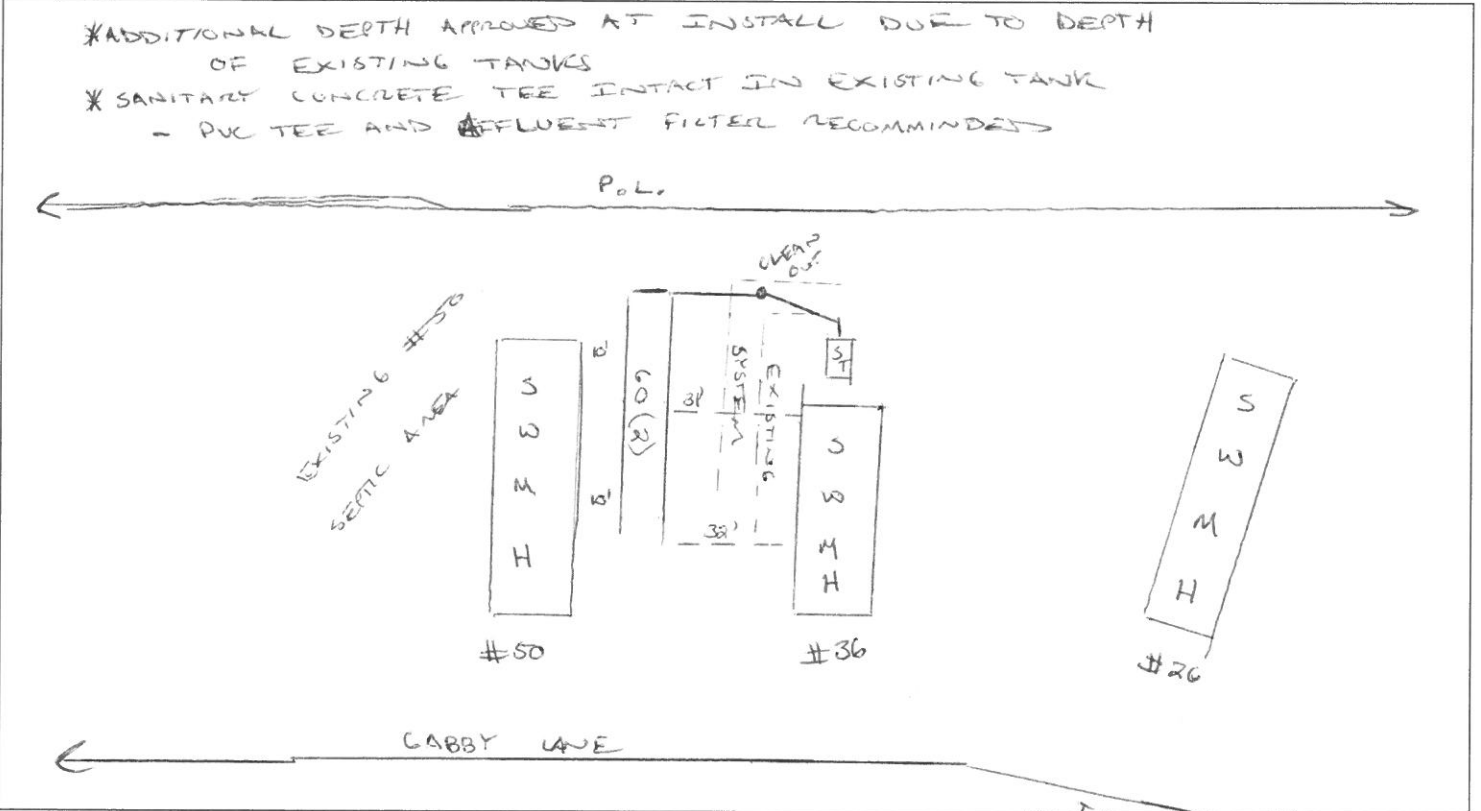 *ADDITIONAL DEPTH APPROVED AT INSTALL DUE TO DEPTH
OF EXISTING TANKS
* SANITARY CONCRETE TEE INTACT IN EXISTING TANK
- PVC TEE AND AFFLUENT FILTER RECOMMINDED
P.L.
CLEAN
OUT
EXISTING #50
SEPTIC AREA
SWMH
#50
60 (2)
31'
32'
EXISTING
SYSTEM
ST
SWMH
#36
SWMH
#26
GABBY LANE